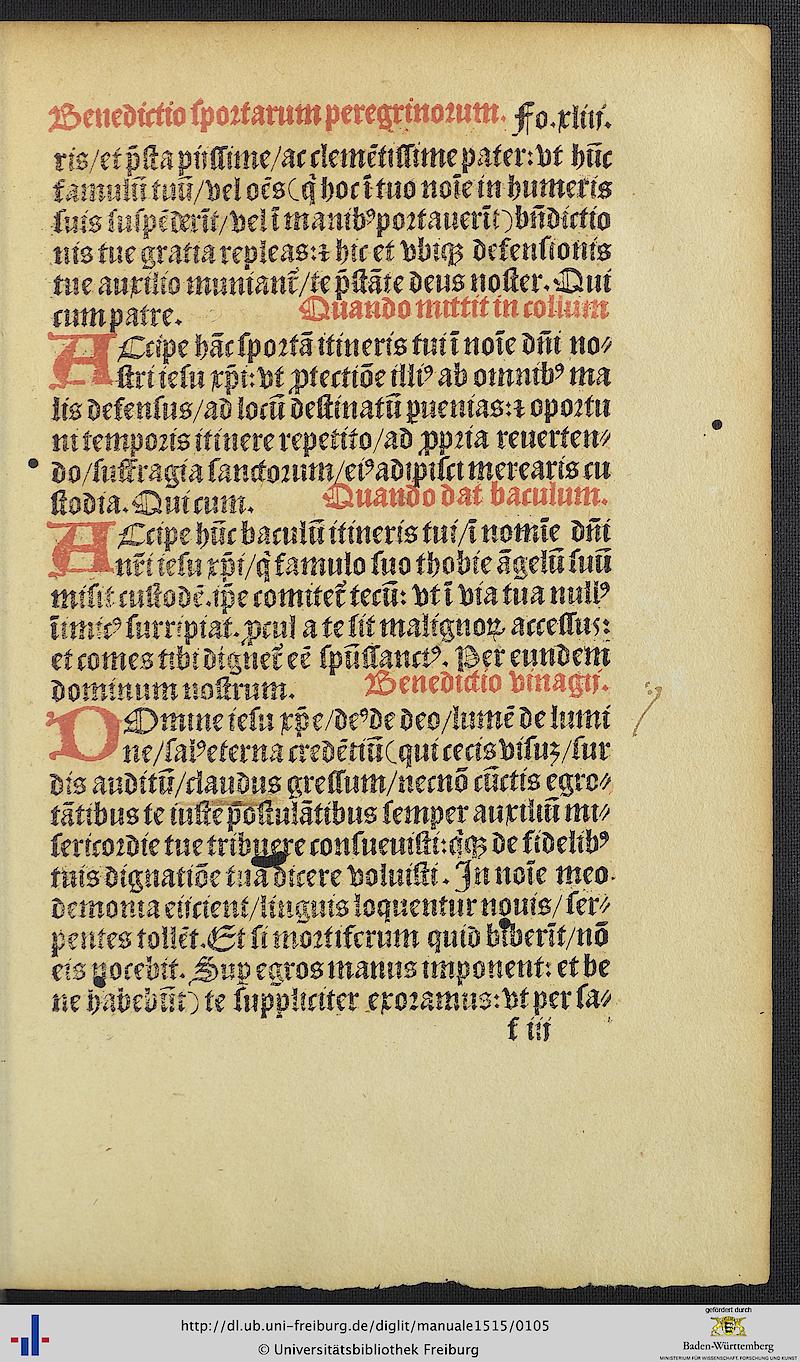 Benedictio sportarum peregrinorum. Fo.xliii.
ris/et p̄sta piissime/ac clemētissime pater: vt hūc
famulū tuū/vel oēs(q̄ hoc ī tuo noīe in humeris
suis suspēderīt/vel ī manibꝰ portauerīt)bn̄dictio
nis tue gratia repleas:⁊ hic et vbiqꝫ defensionis
tue auxilio muniant᷑/te p̄stāte deus noster. Qui
cum patre. Quando mittit in collum
ACcipe hāc sportā itineris tui ī noīe dn̄i no⸗
stri iesu xp̄i: vt ꝓtectiōe illiꝰ ab omnibꝰ ma
lis defensus/ad locū destinatū ꝑuenias:⁊ oportu
ni temporis itinere repetito/ad ꝓpria reuerten⸗
do/suffragia sanctorum/eiꝰ adipisci merearis cu
stodia. Qui cum. Quando dat baculum.
ACcipe hūc baculū itineris tui/ī nomīe dn̄i
nr̄i iesu xp̄i/q̄ famulo suo thobie āgelū suū
misit custodē.ip̄e comitet᷑ tecū: vt ī via tua nullꝰ
īimicꝰ surripiat. ꝓcul a te sit malignoꝝ accessus:
et comes tibi dignet᷑ eē sp̄ūssanctꝰ. Per eundem
dominum nostrum. Benedictio vinagii.
DOmine iesu xp̄e/deꝰ de deo/lumē de lumi
ne/salꝰ eterna credētiū(qui cecis visuꝫ/sur
dis auditū/claudus gressum/necnō cūctis egro⸗
tātibus te iuste postulātibus semper auxiliū mi⸗
sericordie tue tribuere consueuisti: q̄qꝫ de fidelibꝰ
tuis dignatiōe tua dicere voluisti. In noīe meo
demonia eiicient/linguis loquentur nouis/ser⸗
pentes tollēt. Et si mortiferum quid biberīt/nō
eis nocebit. Suꝑ egros manus imponent: et be
ne habebūt) te suppliciter exoramus: vt per sa⸗
f iii
http://dl.ub.uni-freiburg.de/diglit/manuale1515/0105
© Universitätsbibliothek Freiburg
gefördert durch
Baden-Württemberg
MINISTERIUM FÜR WISSENSCHAFT, FORSCHUNG UND KUNST